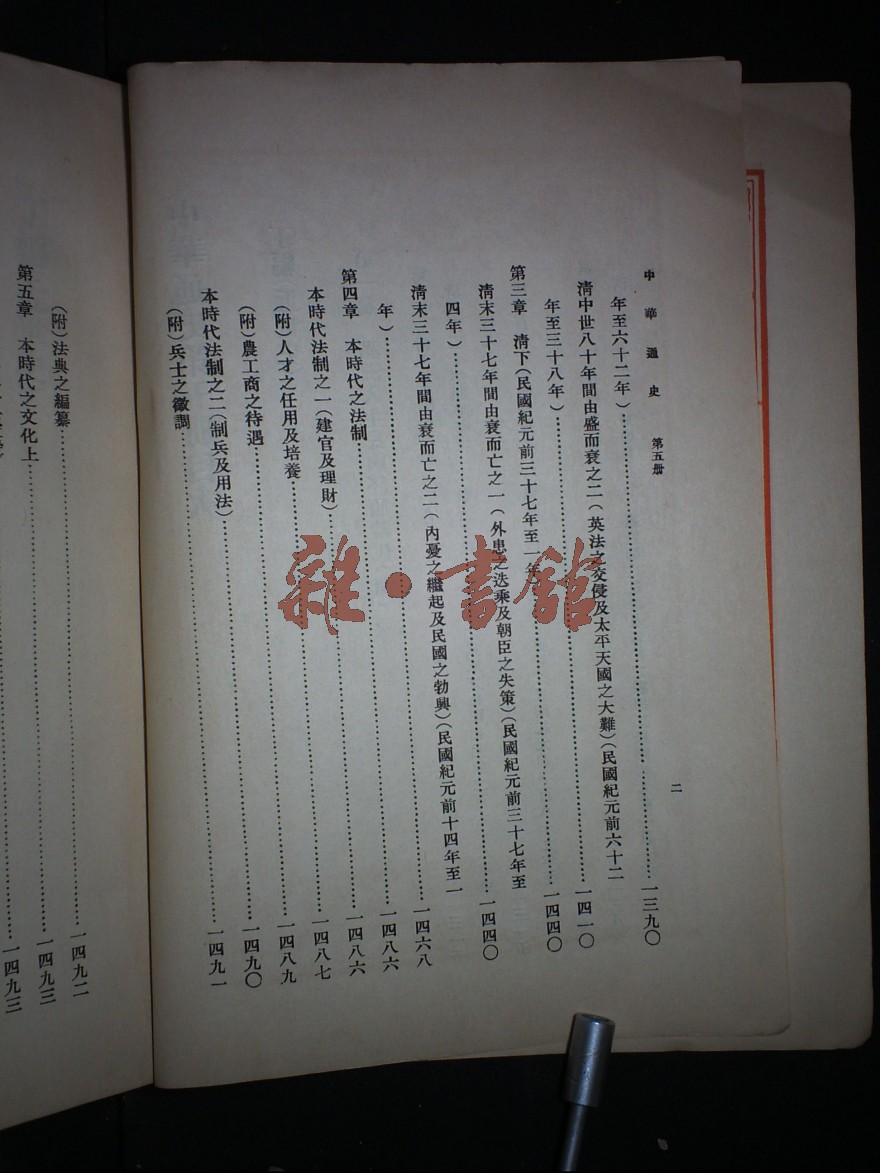 中華通史 第五册 二
年至六十二年)……一三九〇
清中世八十年間由盛而衰之二(英法之交侵及太平天國之大難)(民國紀元前六十二
年至三十八年)……一四一〇
第三章 清下(民國紀元前三十七年至一年)……一四四〇
清末三十七年間由衰而亡之一(外患之迭乘及朝臣之失策)(民國紀元前三十七年至
四年)……一四四〇
清末三十七年間由衰而亡之二(內憂之繼起及民國之勃興)(民國紀元前十四年至一
年)……一四六八
第四章 本時代之法制……一四八六
本時代法制之一(建官及理財)……一四八六
(附)人才之任用及培養……一四八七
(附)農工商之待遇……一四八九
本時代法制之二(制兵及用法)……一四九〇
(附)兵士之徵調……一四九一
(附)法典之編纂……一四九二
第五章 本時代之文化上……一四九三
一四九三
雜·書館